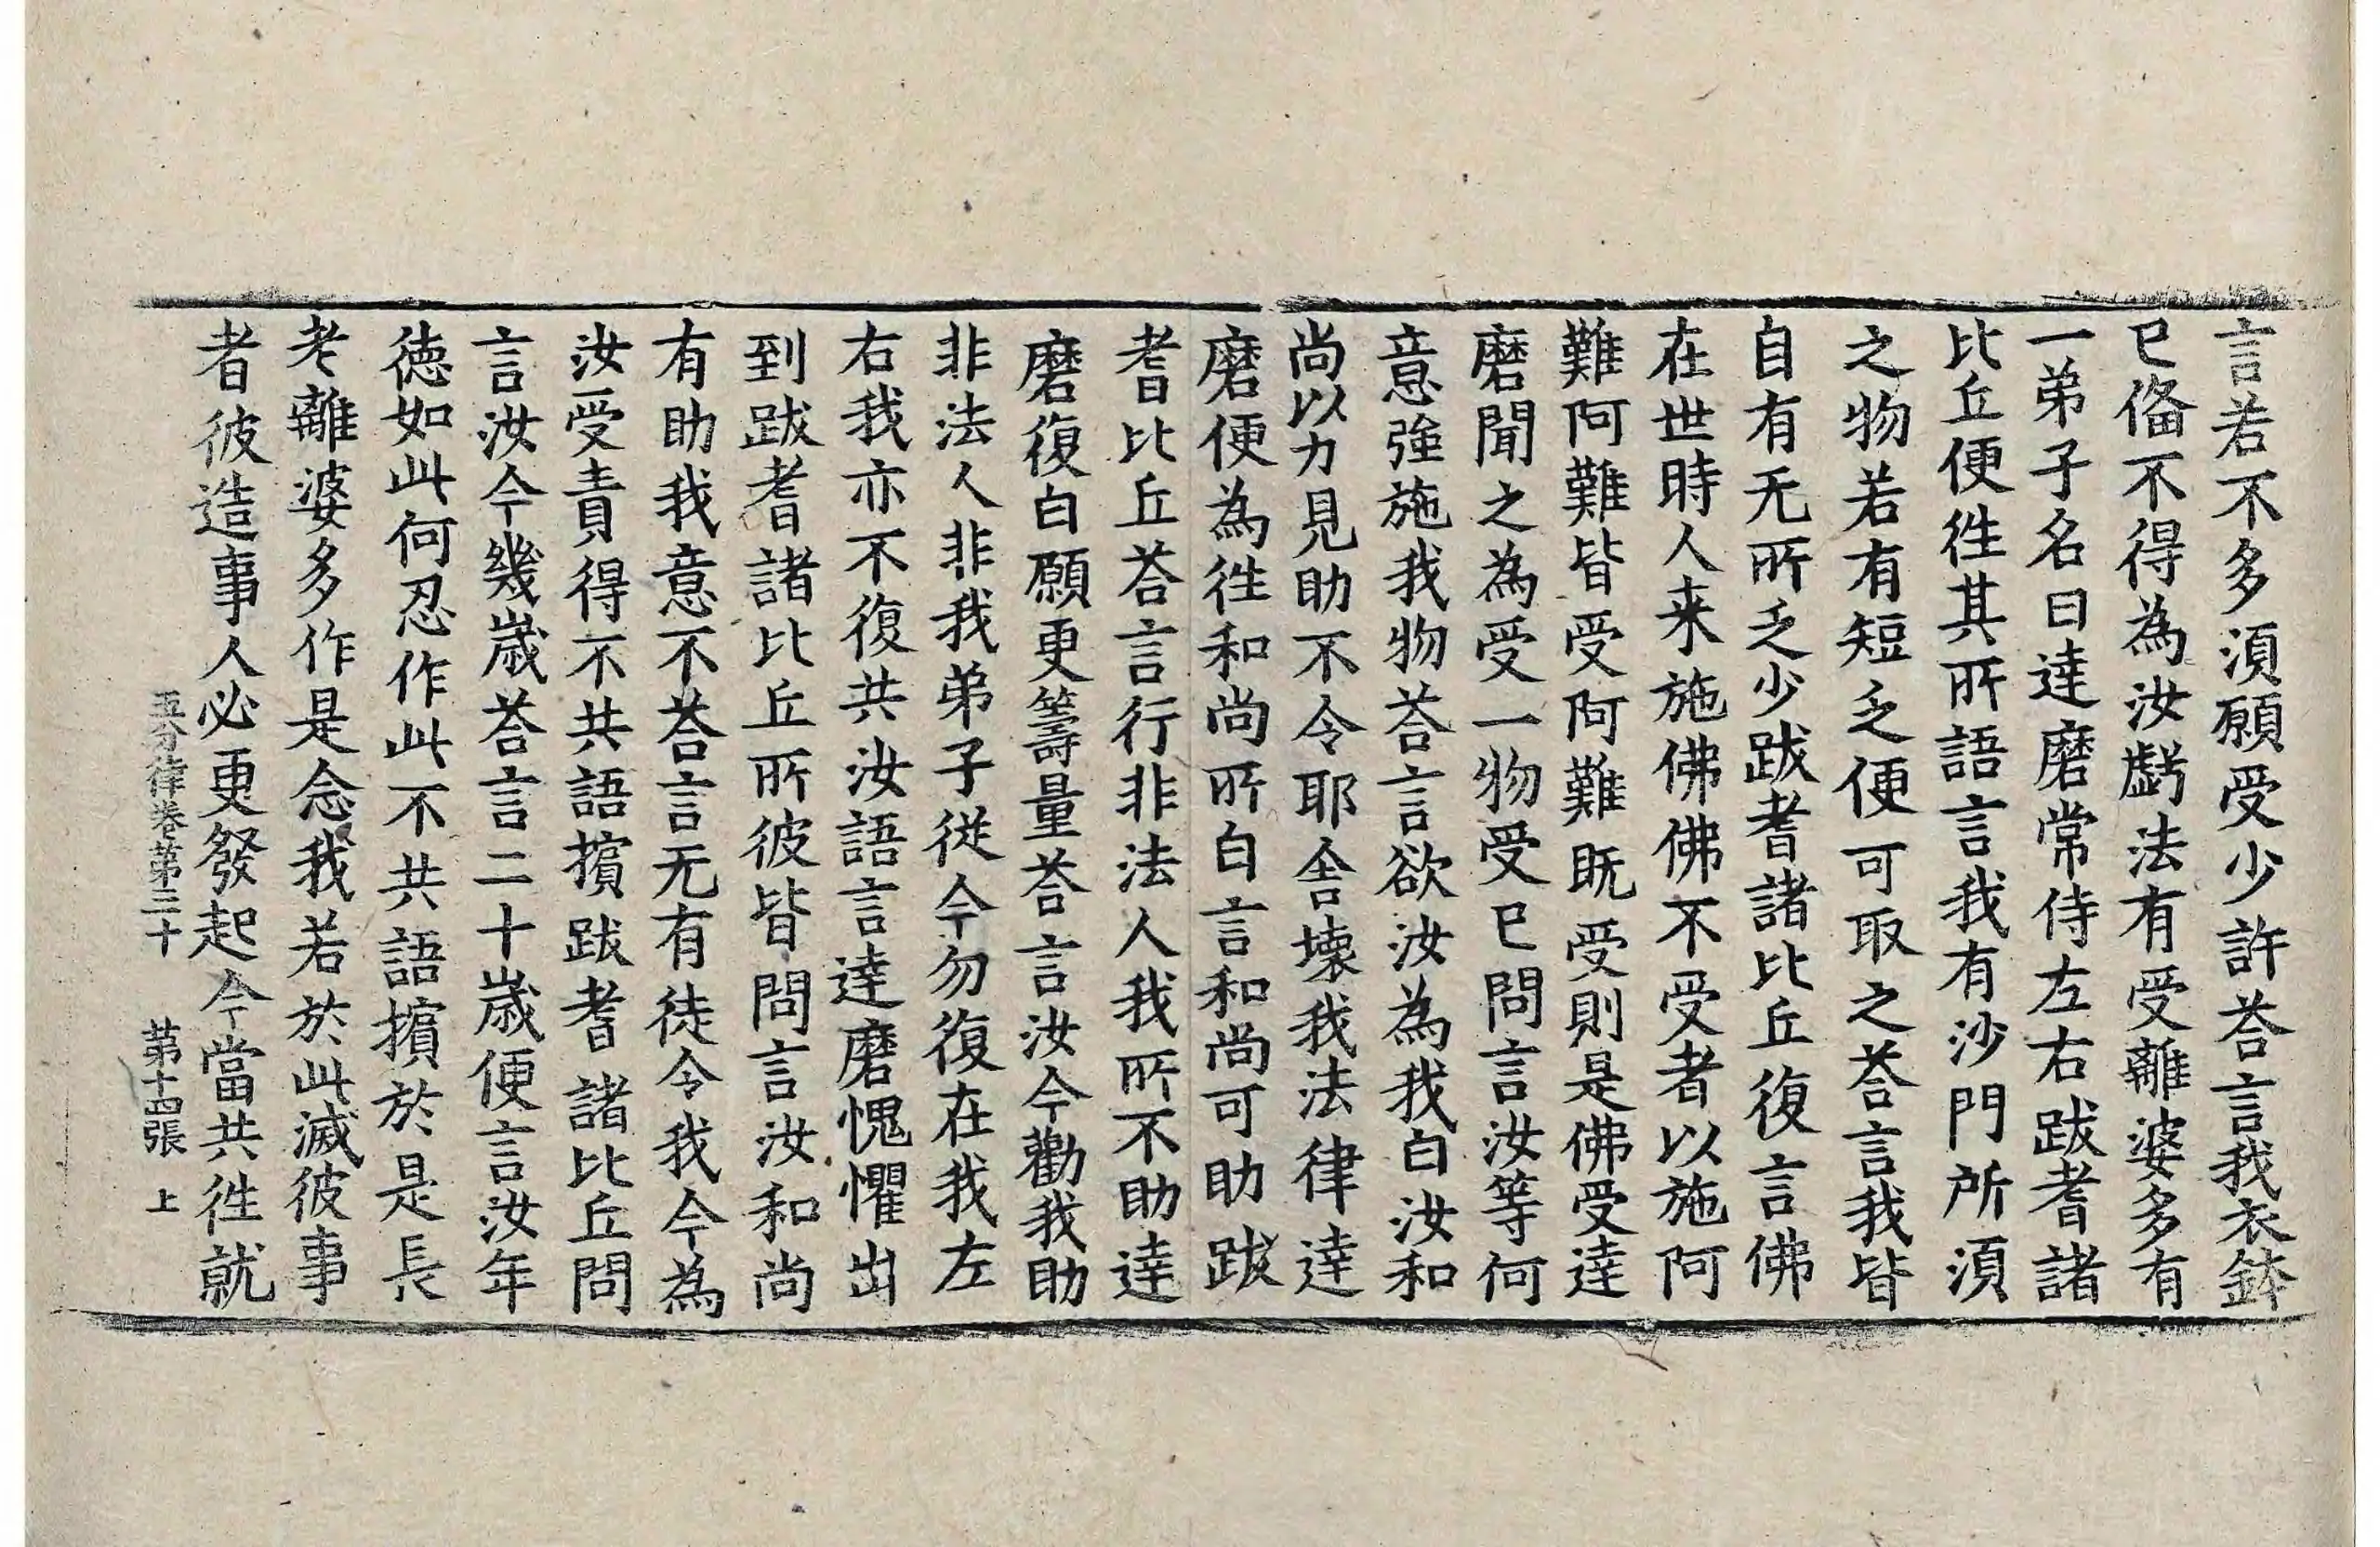 言若不多湏願受少許荅言我衣鉢
已俻不得為汝虧法有受離婆多有
一弟子名曰達磨常侍左右跋耆諸
比丘便徃其所語言我有沙門所湏
之物若有短乏便可取之荅言我皆
自有无所乏少跋耆諸比丘復言佛
在世時人来施佛佛不受者以施阿
難阿難皆受阿難既受則是佛受達
磨聞之為受一物受已問言汝等何
意強施我物荅言欲汝為我白汝和
尚以力見助不令耶舎壊我法律達
磨便為徃和尚所白言和尚可助跋
耆比丘荅言行非法人我所不助達
磨復白願更籌量荅言汝今勸我助
非法人非我弟子從今勿復在我左
右我亦不復共汝語言達磨愧懼出
到跋耆諸比丘所彼皆問言汝和尚
有助我意不荅言无有徒令我今為
汝受責得不共語擯跋耆諸比丘問
言汝今幾歲荅言二十歲便言汝年
徳如此何忍作此不共語擯於是長
老離婆多作是念我若於此滅彼事
者彼造事人必更發起今當共徃就
五分律卷第三十 第十四張 上